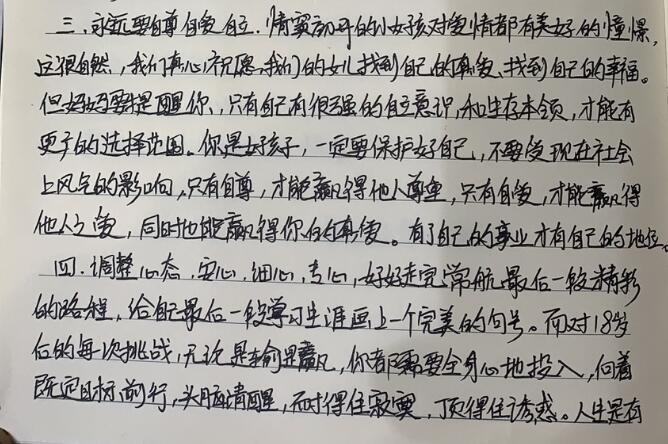 三、永远要自尊自爱自立。情窦初开的小女孩对爱情都有美好的憧憬,
这很自然,我们真心祝愿、我们的女儿找到自己的真爱、找到自己的幸福。
但妈妈要提醒你,只有自己有很强的自立意识,和生存本领,才能有
更多的选择范围。你是女孩子,一定要保护好自己,不要受现在社会
上风气的影响,只有自尊,才能赢得他人尊重,只有自爱,才能赢得
他人之爱,同时也能赢得你自己的真爱。有了自己的事业才有自己的地位。
四、调整心态,安心、细心、专心,好好走完学航最后一段精彩
的路程,给自己最后一段学习生涯画上一个完美的句号。面对18岁
后的每次挑战,无论是输是赢,你都需要全身心地投入,向着
既定目标前行,头脑清醒,耐得住寂寞,顶得住诱惑。人生是有